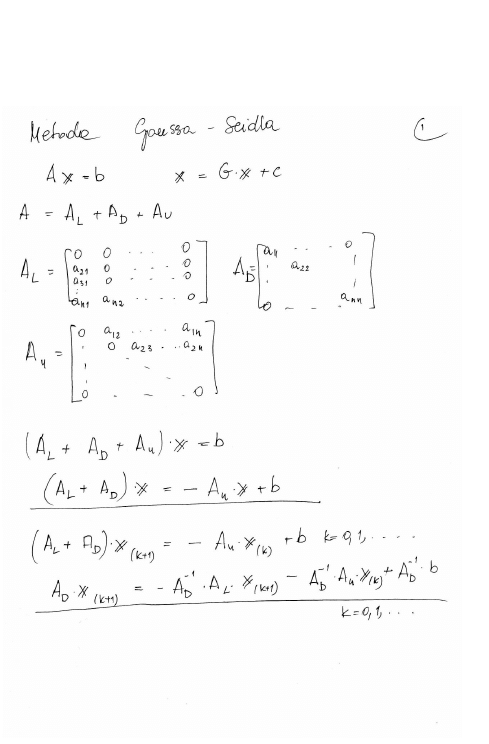 Metoda Gaussa - Seidla 1
A x = b x = G·x + c
A = A_L + A_D + A_U
A_L = [0 0 ... 0; a21 0 ... 0; a31 0 ... 0; ⋮; an1 an2 .... 0] A_D = [a11 ... 0; ⋮ a22 ⋮; ⋮ ann; 0 - - -]
A_u = [0 a12 .... a1n; ⋮ 0 a23 ... a2n; ⋮; 0 - - - 0]
(A_L + A_D + A_u)·x = b
(A_L + A_D)·x = - A_u·x + b
(A_L + A_D)·x_(k+1) = - A_u·x_(k) + b k=0,1,....
A_D·x_(k+1) = - A_D^-1·A_L·x_(k+1) - A_D^-1·A_u·x_(k) + A_D^-1·b
k=0,1,...